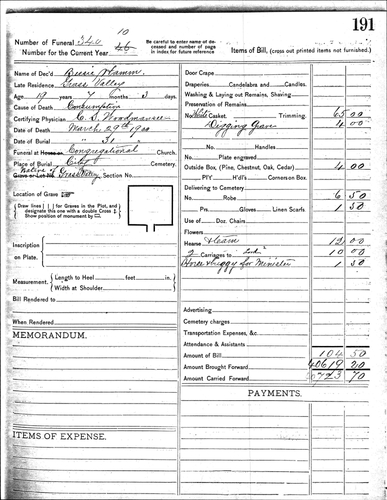 191
Number of Funeral 340 10
Number for the Current Year 46
Be careful to enter name of deceased and number of page in index for future reference
Items of Bill, (cross out printed items not furnished.)
Name of Dec'd. Bessie Hamm
Late Residence Grass Valley
Age 19 years 7 months 3 days
Cause of Death Consumption
Certifying Physician C. S. Woodmansee
Date of Death March 29th 1900
Date of Burial " 31 "
Funeral at House or Congregational Church.
Place of Burial City Cemetery.
Native of Grass Valley, Section No.
Location of Grave
Draw lines for Graves in the Plot, and designate this one with a double Cross
Show position of monument by
Inscription on Plate.
Measurement. Length to Heel feet in.
Width at Shoulder
Bill Rendered to
When Rendered
MEMORANDUM.
ITEMS OF EXPENSE.
Door Crape
Draperies Candelabra and Candles.
Washing & Laying out Remains, Shaving
Preservation of Remains
No. Casket Trimming. 65 00
Digging Grave 4 00
No. Handles
Plate engraved
Outside Box, (Pine, Chestnut, Oak, Cedar) 4 00
No. PIY H'd's Corners on Box
Delivering to Cemetery
No. Robe 6 50
Prs. Gloves Linen Scarfs 1 50
Use of Doz. Chairs
Flowers
Hearse & team 12 00
2 Carriages to Cem. 10 00
Horse & buggy for Minister 1 50
Advertising
Cemetery charges
Transportation Expenses, &c
Attendance & Assistants
Amount of Bill 104 50
Amount Brought Forward 40619 20
Amount Carried Forward 40723 70
PAYMENTS.